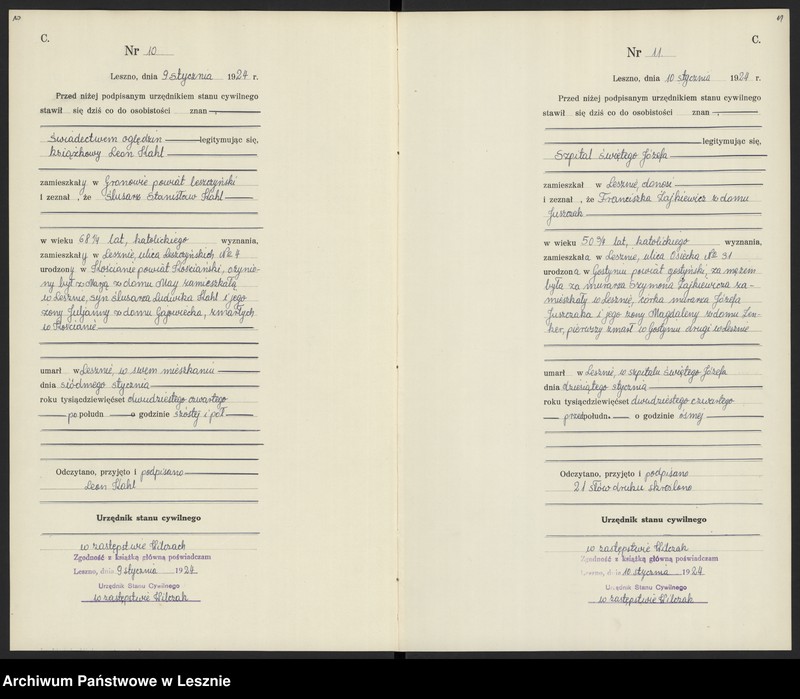 C.
Nr 10
Leszno, dnia 9 stycznia 1924 r.
Przed niżej podpisanym urzędnikiem stanu cywilnego
stawił się dziś co do osobistości znan
świadectwem oględzin legitymując się,
książkowy Leon Stahl
zamieszkały w Gronowie powiat leszczyński
i zeznał, że ślusarz Stanisław Stahl
w wieku 68 3/4 lat, katolickiego wyznania,
zamieszkały w Lesznie, ulica Leszczyńskich Nr 4
urodzony w Kościanie powiat Kościański,
ny był z z domu May zamieszkałą
w Lesznie, syn ślusarza Ludwika Stahl i jego
żony Juljanny z domu zmarłych
w Kościanie
umarł w Lesznie, w swem mieszkaniu
dnia siódmego stycznia
roku tysiącdziewięćset dwudziestego czwartego
po połudn o godzinie szóstej i pół
Odczytano, przyjęto i podpisano
Leon Stahl
Urzędnik stanu cywilnego
w zastępstwie
Zgodność z książką główną poświadczam
Leszno, dnia 9 stycznia 1924
Urzędnik Stanu Cywilnego
w zastępstwie
49
C.
Nr 11
Leszno, dnia 10 stycznia 1924 r.
Przed niżej podpisanym urzędnikiem stanu cywilnego
stawił się dziś co do osobistości znan
legitymując się,
Szpital świętego Józefa
zamieszkał w Lesznie, donosi
i zeznał, że Franciszka Zajkiewicz z domu
Juszczak
w wieku 50 3/4 lat, katolickiego wyznania,
zamieszkała w Lesznie, ulica Osiecka Nr 31
urodzona w Gostyniu powiat gostyński, za mężem
była za murarza Szymona Zajkiewicza za-
mieszkały w Lesznie, córka murarza Józefa
Juszczaka i jego żony Magdaleny z domu Zen-
ker, pierwszy zmarł w Gostyniu drugi w Lesznie
umarł w Lesznie, w szpitalu świętego Józefa
dnia dziesiątego stycznia
roku tysiącdziewięćset dwudziestego czwartego
przedpołudn. o godzinie ósmej
Odczytano, przyjęto i podpisano
21 słów druku skreślono
Urzędnik stanu cywilnego
w zastępstwie
Zgodność z książką główną poświadczam
Leszno, dnia 10 stycznia 1924
Urzędnik Stanu Cywilnego
w zastępstwie
Archiwum Państwowe w Lesznie